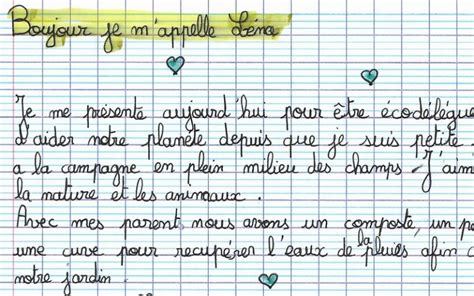 Boujour je m'appelle Léna
Je me présente aujourd'hui pour être écodélégue
d'aider notre planète depuis que je suis petite.
a la campagne en plein milieu des champs. J'aim
la nature et les animaux.
Avec mes parent nous avons un composte, un p
une cuve pour recupérer l'eaux de la pluies afin
notre jardin.